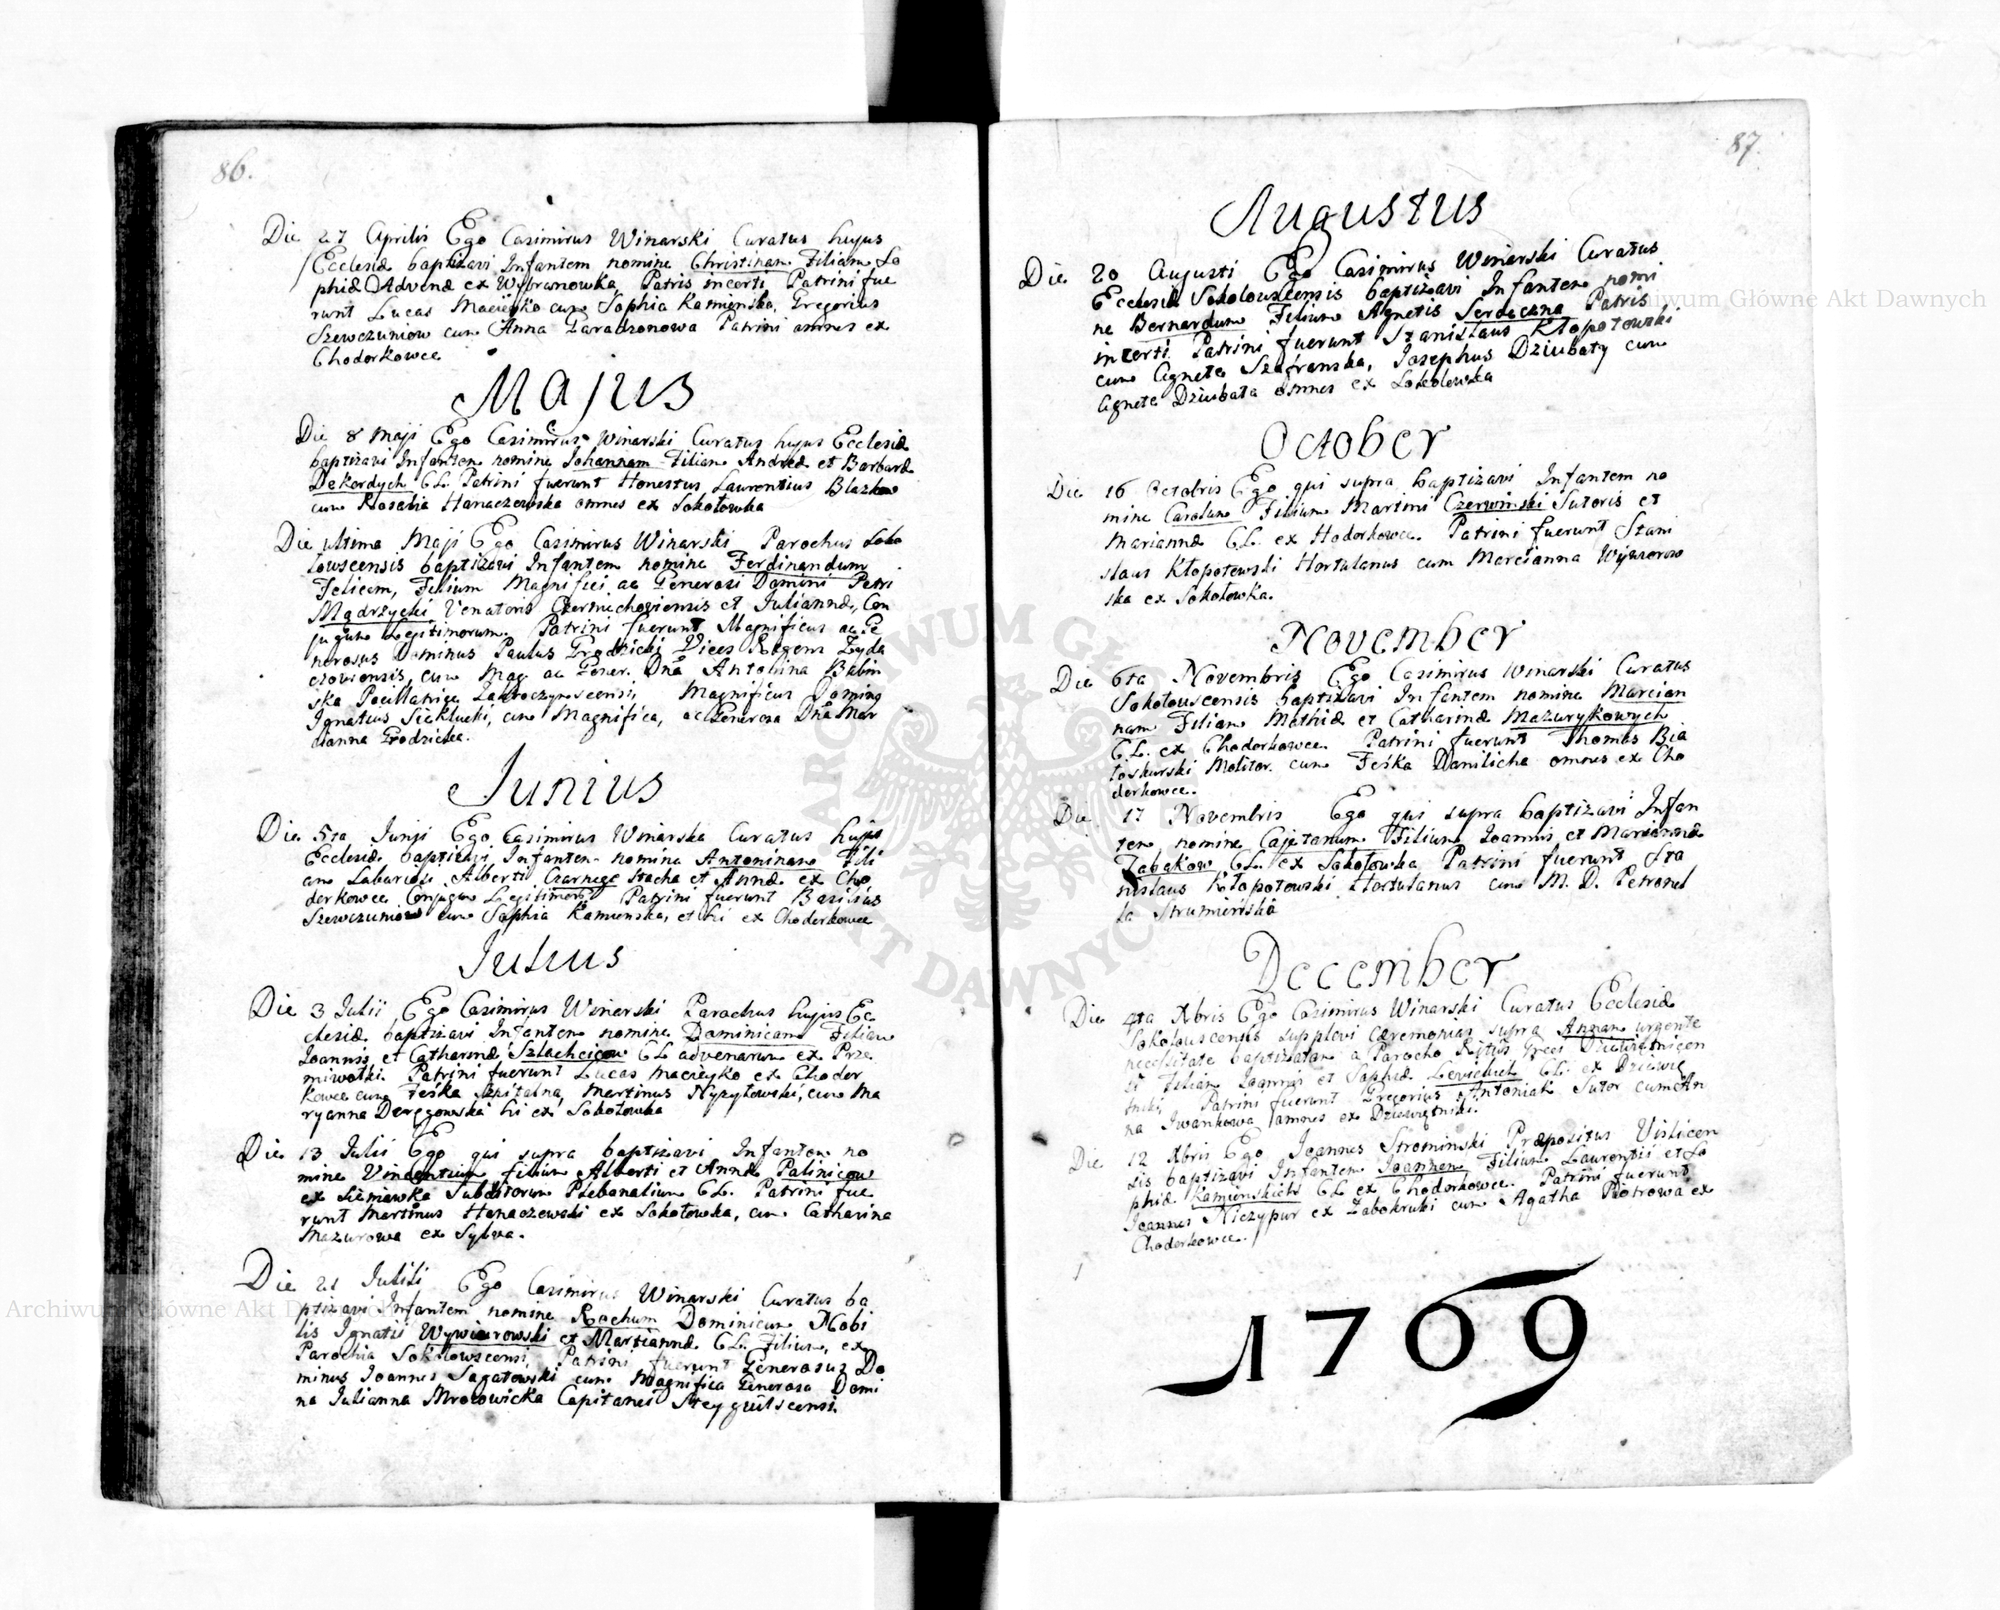 86.
Die 27 Aprilis Ego Casimirus Winarski Curatus hujus
Ecclesiæ baptizavi Infantem nomine Christinam Filiam So
phiæ Advenæ ex Wybranowka, Patris incerti Patrini fue
runt Lucas Macieyko cum Sophia Kamienska, Gregorius
Szewczuniow cum Anna Paradzonowa Patrini omnes ex
Chodorkowce
Majus
Die 8 Maji Ego Casimirus Winarski Curatus hujus Ecclesiæ
baptizavi Infantem nomine Johannam Filiam Andreæ et Barbaræ
Dekordych CL Patrini fuerunt Honestus Laurentius Blazkow
cum Rosalia Hanaczewska omnes ex Sokołowka
Die ultima Maji Ego Casimirus Winarski Parochus Soko
łowscensis baptizavi Infantem nomine Ferdinandum
Felicem, Filium Magnifici ac Generosi Domini Petri
Mądrzycki Venatoris Czerniechoviensis et Juliannæ, Con
jugum Legitimorum. Patrini fuerunt Magnificus ac Ge
nerosus Dominus Paulus Grodzicki Vices Regens Zyda
czoviensis, cum Mag. ac Gener. Dna Antonina Babin
ska Pocillatrice Zakroczymscensi, Magnificus Dominq
Ignatius Siekłucki, cum Magnifica, ac Generosa Dna Mar
cianna Grodzicka.
Junius
Die 5ta Junji Ego Casimirus Winarska Curatus hujus
Ecclesiæ baptizavi Infantem nomine Antoninam Fili
am Laboriosi Alberti Czarnego Stacha et Annæ ex Cho
derkowce Conjugum Legitimor. Patrini fuerunt Basilius
Szewczuniow cum Sophia Kamienska, et hi ex Choderkowce
Julius
Die 3 Julii Ego Casimirus Winarski Parochus hujus Ec
clesiæ baptizavi Infantem nomine Dominicam Filiam
Joannis et Catharinæ Szlachcicow CL advenarum ex Prze
miwołki Patrini fuerunt Lucas Macieyko ex Choder
kowce cum Feśka Szpitalna, Martinus Nyzyłowski, cum Ma
ryanna Deręgowska hi ex Sokołowka
Die 13 Julii Ego qui supra baptizavi Infantem no
mine Vincentium filium Alberti et Annæ Palinicow
ex Sieniawka Subditorum Plebanalium CL. Patrini fue
runt Martinus Hanaczewski ex Sokołowka, cum Catharina
Mazurowa ex Sylva.
Die 21 Julii Ego Casimirus Winarski Curatus ba
ptizavi Infantem nomine Rochum Dominicum Nobi
lis Ignatii Wywiorowski et Martiannæ CL. Filium, ex
Parochia Sokołowscensi, Patrini fuerunt Generosus Do
minus Joannes Sagatowski cum Magnifica Generosa Domi
na Julianna Mrozowicka Capitanei Stęygwilscensi.
87.
Augustus
Die 20 Augusti Ego Casimirus Winarski Curatus
Ecclesiæ Sokolowscensis baptizavi Infantem nomi
ne Bernardum Filium Agnetis Serdeczna Patris
incerti Patrini fuerunt Stanislaus Kłopotowski
cum Agnete Szafranska, Josephus Dziubaty cum
Agnete Dziubata omnes ex Sokolowka
October
Die 16 Octobris Ego qui supra baptizavi Infantem no
mine Carolum Filium Martini Czerwinski Sutoris et
Mariannæ CL. ex Hodorkowce. Patrini fuerunt Stani
slaus Kłopotewski Hortulanus cum Marcianna Wywiorow
ska ex Sokołowka.
November
Die 6ta Novembris Ego Casimirus Winarski Curatus
Sokołouscensis baptizavi Infantem nomine Marcian
nam Filiam Mathiæ et Catharinæ Mazurykowych
CL. ex Choderkowce Patrini fuerunt Thomas Bia
łoskurski Molitor cum Feśka Danilicha omnes ex Cho
derkowce.
Die 17 Novembris Ego qui supra baptizavi Infan
tem nomine Cajetanum Filium Joannis et Mariannæ
Zabąkow CL. ex Sokołowka Patrini fuerunt Sta
nislaus Kłopotowski Hortulanus cum M. D. Petronel
la Strumieńska
December
Die 4ta Xbris Ego Casimirus Winarski Curatus Ecclesiæ
Sokolouscensis supplevi cæremonias supra Annam urgente
necessitate baptizatam a Parocho Ritus Græci Dziewiętnicen
si Filiam Joannis et Sophiæ Levickich CL. ex Dziewię
tniki, Patrini fuerunt Gregorius Antoniak Sutor cum An
na Jwankowa omnes ex Dziewiętniki.
Die 12 Xbris Ego Joannes Strominski Præpositus Vislicen
sis baptizavi Infantem Joannem Filium Laurentii et So
phiæ Kamienskich CL ex Chodorkowce. Patrini fuerunt
Joannes Niczypur ex Zabokruki cum Agatha Piotrowa ex
Choderkowce.
1769
Archiwum Główne Akt Dawnych
Archiwum Główne Akt Dawnych
ARCHIWUM GŁÓWNE AKT DAWNYCH